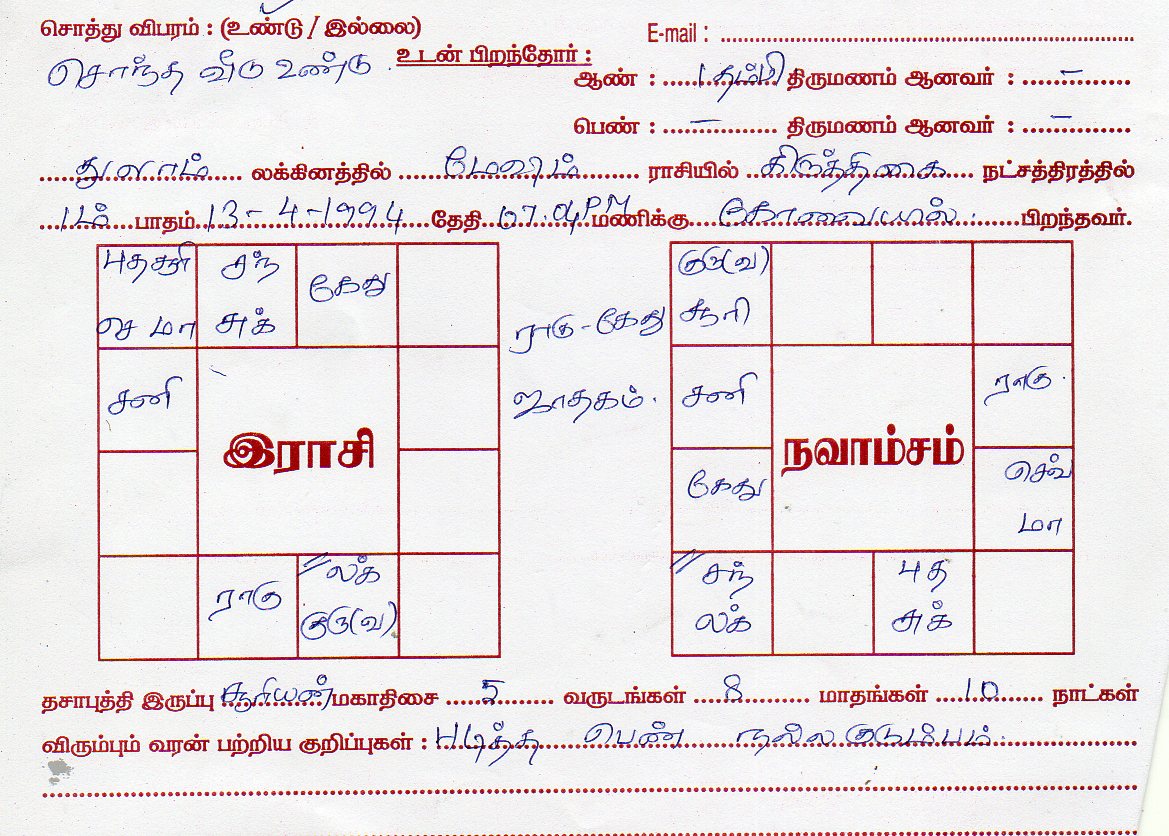 சொத்து விபரம் : (உண்டு / இல்லை)
E-mail : ........
சொந்த வீடு உண்டு.
உடன் பிறந்தோர் :
ஆண் : 1 தம்பி திருமணம் ஆனவர் : –
பெண் : – திருமணம் ஆனவர் : –
துலாம் லக்கினத்தில் மேஷம் ராசியில் கிருத்திகை நட்சத்திரத்தில்
1ம் பாதம் 13-4-1994 தேதி 07.04PM மணிக்கு கோவையில் பிறந்தவர்.
புத சூரி
செ மா
சந்
சுக்
கேது
சனி
இராசி
ராகு
லக்
குரு(வ)
ராகு - கேது
ஜாதகம்.
குரு(வ)
சூரி
சனி
ராகு.
நவாம்சம்
கேது
செவ்
மா
சந்
லக்
புத
சுக்
தசாபுத்தி இருப்பு சூரியன் மகாதிசை 5 வருடங்கள் 8 மாதங்கள் 10 நாட்கள்
விரும்பும் வரன் பற்றிய குறிப்புகள் : படித்த பெண் நல்ல குடும்பம்.